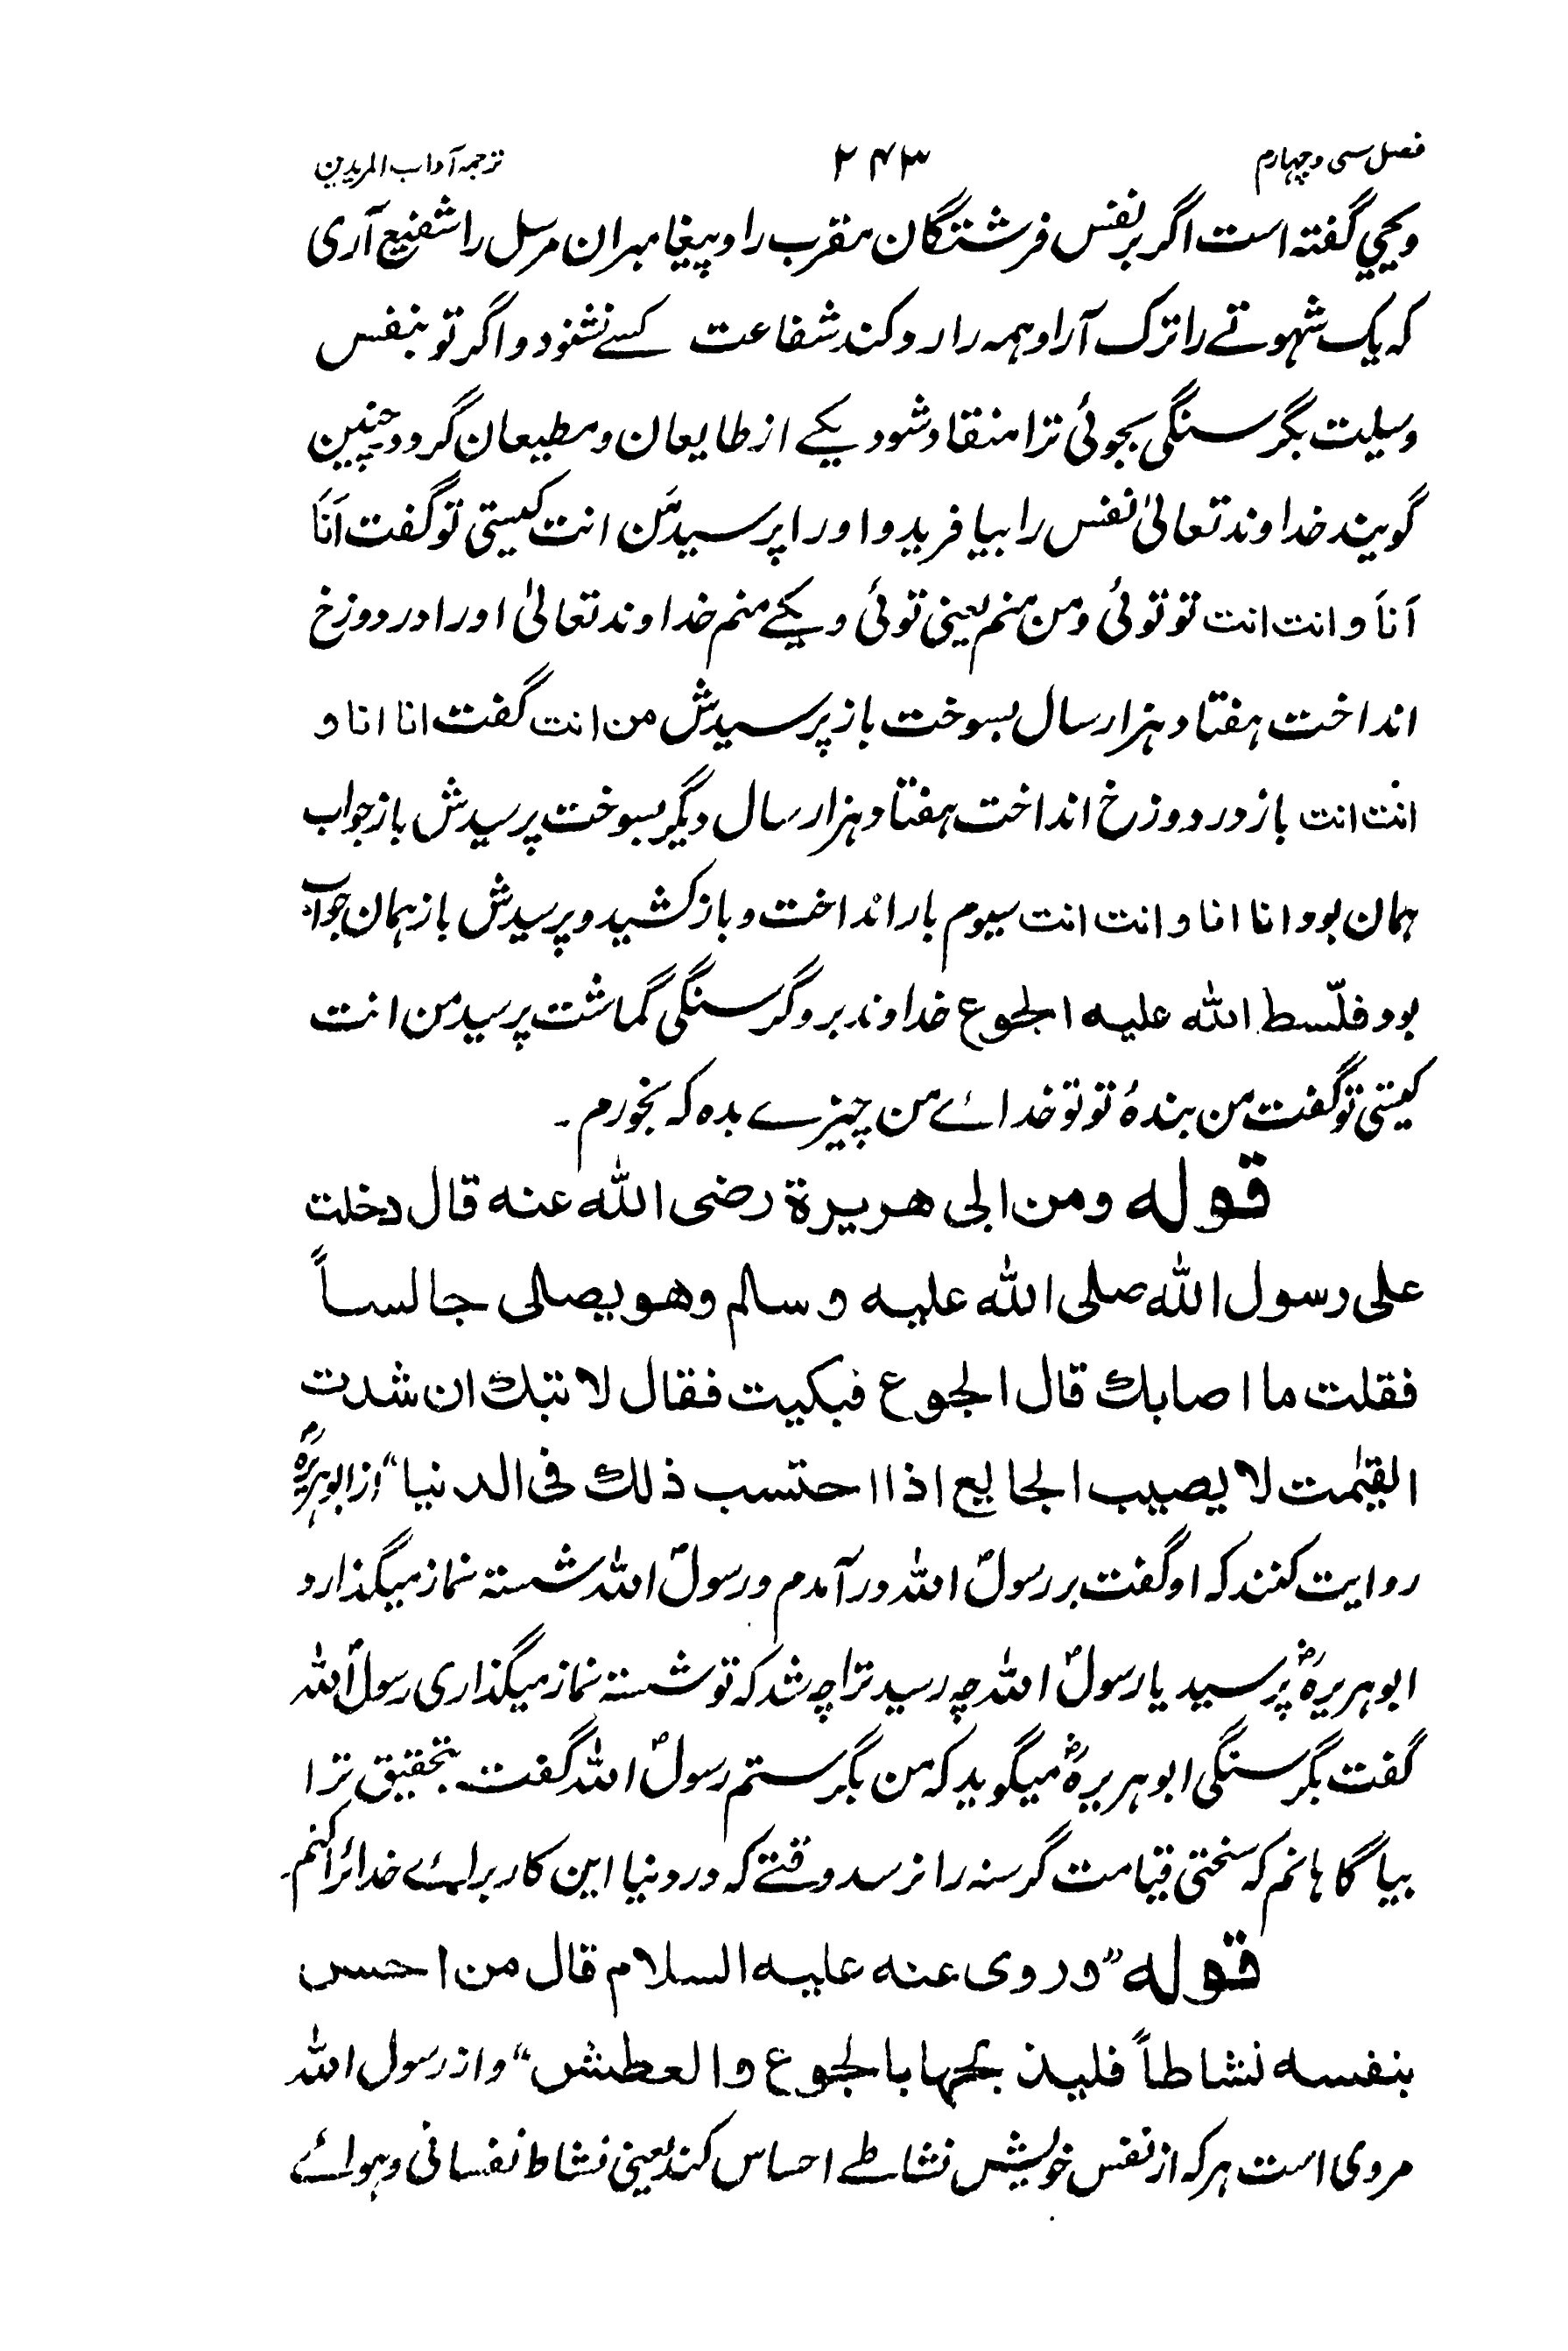 فصل سی و چہارم ۲۴۳ ترجمہ آداب المریدین
ویحیي گفتہ است اگر بر نفس فرشتگان مقرب را و پیغامبران مرسل را شفیع آری
کہ یک شہوتے را ترک آر او ہمہ را رد کند شفاعت کسے نشنود و اگر تو بنفس
وسیلت بگرسنگی بجوئی ترا منقاد شود یکے از طایعان و مطیعان گردد چنین
گویند خداوند تعالیٰ نفس را بیافرید و اورا پرسید مَن انت کیستی تو گفت اَنَا
اَنَا و انت انت تو توئی و من منم یعنی توئی و یکے منم خداوند تعالیٰ اورا در دوزخ
انداخت ہفتاد ہزار سال بسوخت باز پرسیدش من انت گفت انا انا و
انت انت باز در دوزخ انداخت ہفتاد ہزار سال دیگر بسوخت پرسیدش باز جواب
ہمان بود انا انا و انت انت سیوم بار انداخت و باز کشید و پرسیدش باز ہمان جواب
بود فلّسط اللہ علیہ الجوع خداوند برو گرسنگی گماشت پرسید من انت
کیستی تو گفت من بندۂ تو تو خدائے من چیزے بدہ کہ بخورم ۔
قوله ومن ابی هریرة رضی الله عنه قال دخلت
علی رسول الله صلی الله علیه و سالم وهو یصلی جالساً
فقلت ما اصابك قال الجوع فبکیت فقال لا تبك ان شدت
القیٰمت لا یصیب الجایع اذا احتسب ذلك فی الدنیا“ از ابوہریرہؓ
روایت کنند کہ او گفت بر رسولؐ اللہ در آمدم و رسولؐ اللہ شستہ نماز میگذارد
ابوہریرہؓ پرسید یا رسولؐ اللہ چہ رسید ترا چہ شد کہ تو شستہ نماز میگذاری رسولؐ اللہ
گفت بگرسنگی ابوہریرہؓ میگوید کہ من بگرستم رسولؐ اللہ گفت بتحقیق ترا
بیاگاہانم کہ سختی قیامت گرسنہ را نرسد وقتے کہ در دنیا این کار براے خدائرا کنم۔
قوله ”وروی عنه علیه السلام قال من احس
بنفسه نشاطاً فلیذبحها بالجوع والعطش“ و از رسول اللہ
مروی است ہر کہ از نفس خویش نشاطے احساس کند یعنی نشاط نفسانی و ہوائے